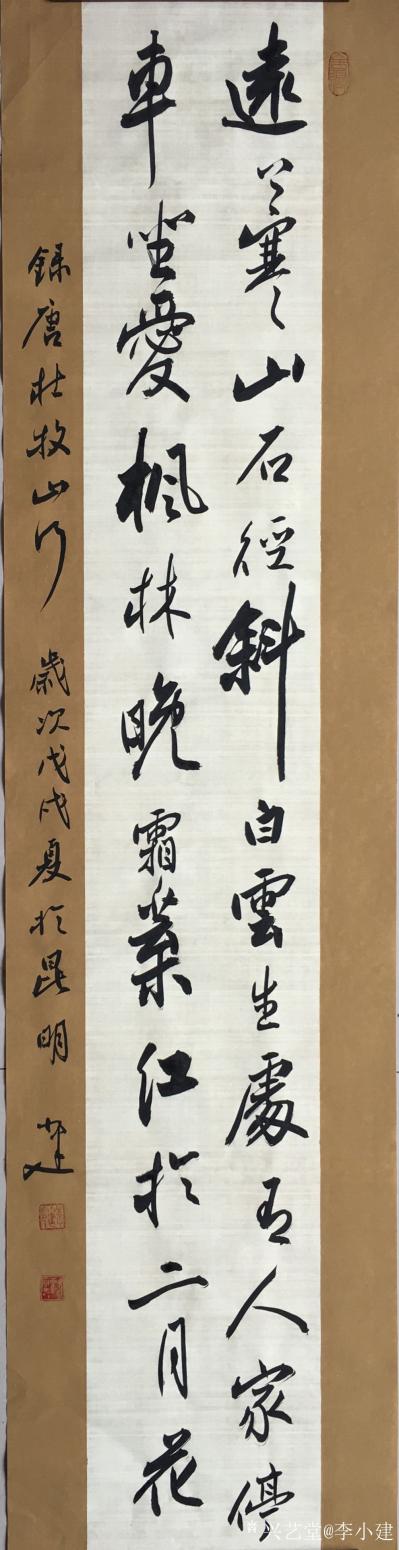 遠上寒山石徑斜白雲生處有人家停
車坐愛楓林晚霜葉紅於二月花
錄唐杜牧山行 歲次戊戌夏於昆明 小建
兴艺堂@李小建